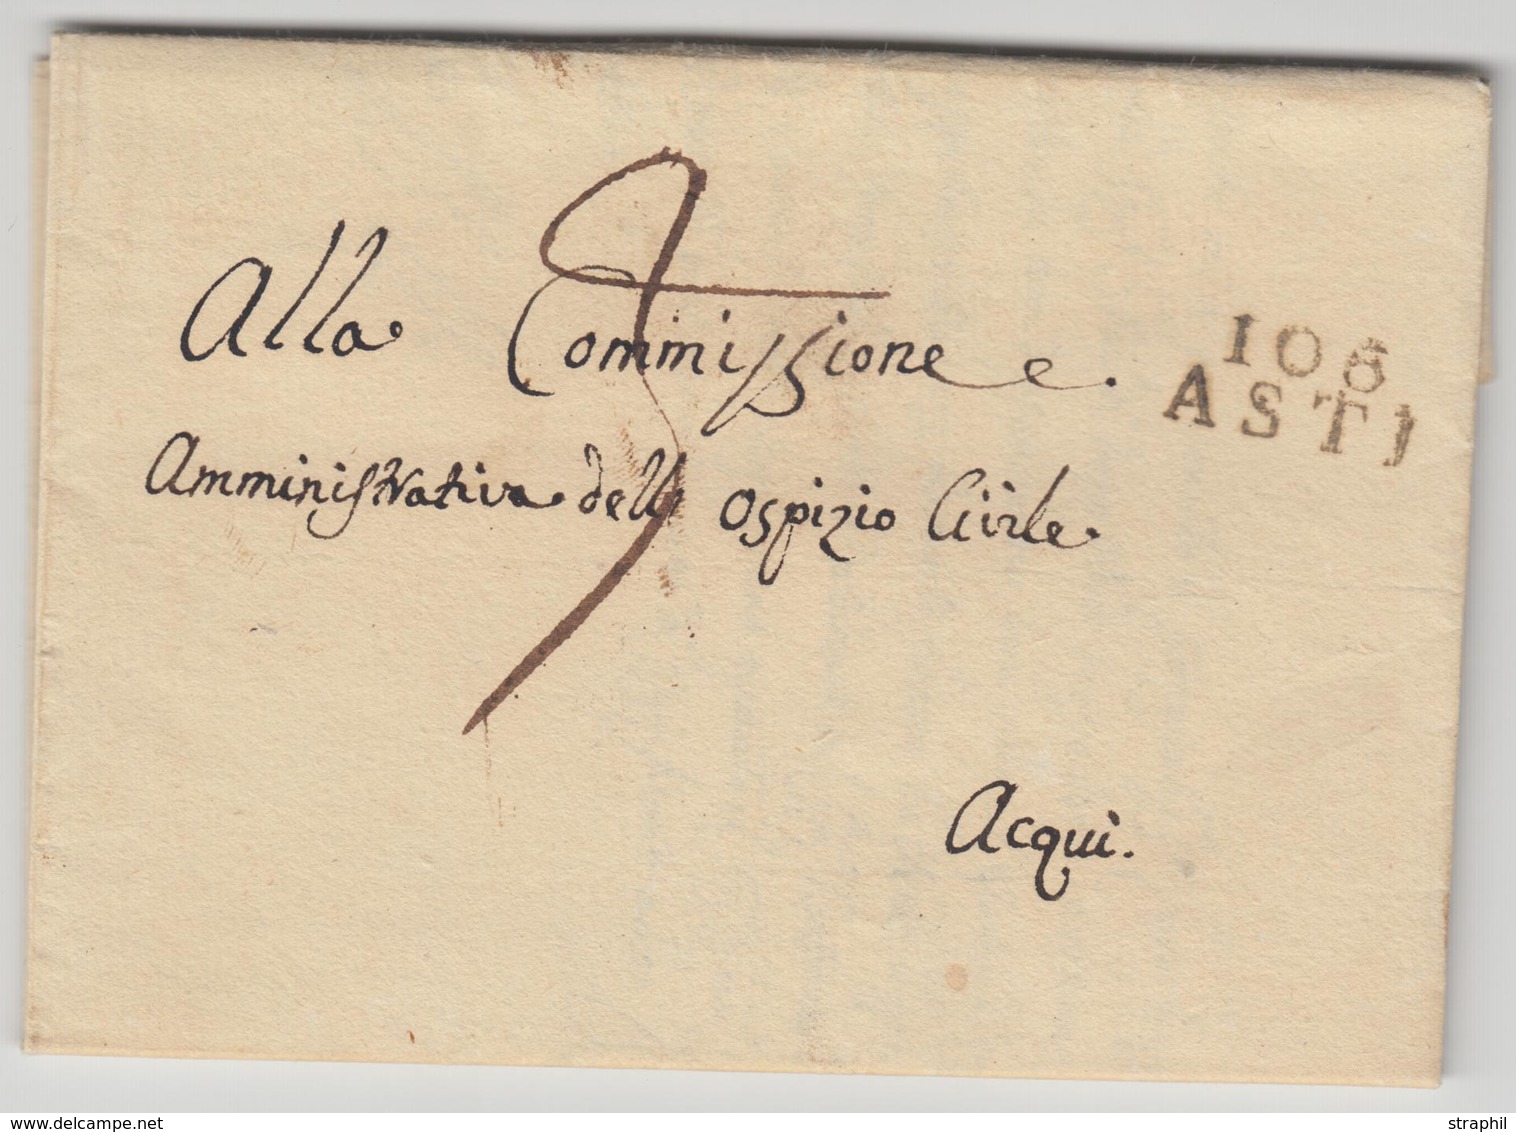 Alla Commissione e.
106
ASTI
Amministrativa dell' ospizio Civile.
Acqui.
www.delcampe.net
straphil